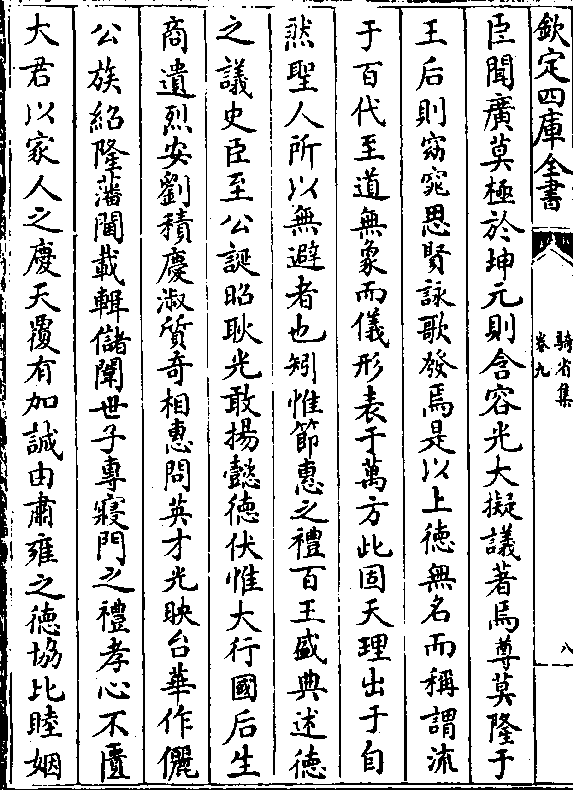 欽定四庫全書
騎省集
卷九
八
臣聞廣莫極於坤元則含容光大擬議著焉尊莫隆于
王后則窈窕思賢詠歌發焉是以上徳無名而稱謂流
于百代至道無象而儀形表于萬方此固天理出于自
然聖人所以無避者也矧惟節惠之禮百王盛典述徳
之議史臣至公誕昭耿光敢揚懿徳伏惟大行國后生
商遺烈安劉積慶淑質奇相惠問英才光映台華作儷
公族紹隆藩閫載輯儲闈世子專寢門之禮孝心不匱
大君以家人之慶天覆有加誠由肅雍之徳協比睦姻